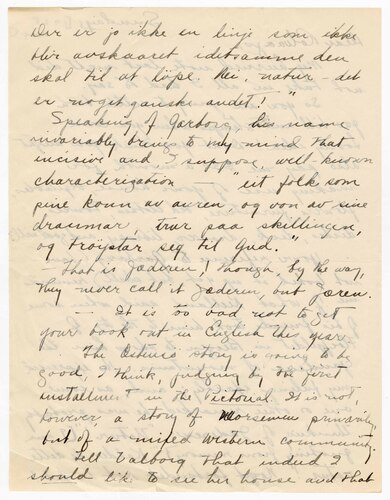 Der er jo ikke en linje som ikke
blir avskaaret idetsamme den
skal til at løpe. Nei, natur - det
er noget ganske andet!"
Speaking of Garborg, his name
invariably brings to my mind that
incisive and, I suppose, well-known
characterization — "eit folk som
pine konn av auren, og von av sine
draumar, trur paa skillingen,
og trøystar seg til Gud."
— That is Jæderen! Though, by the way,
they never call it Jæderen, but Jæren.
— It is too bad not to get
your book out in English this year.
The Ostenso story is going to be
good, I think, judging by the first
installment in the Pictorial. It is not,
however, a story of Norsemen primarily,
but of a mixed western community.
Tell Valborg that indeed I
should like to see her house and that